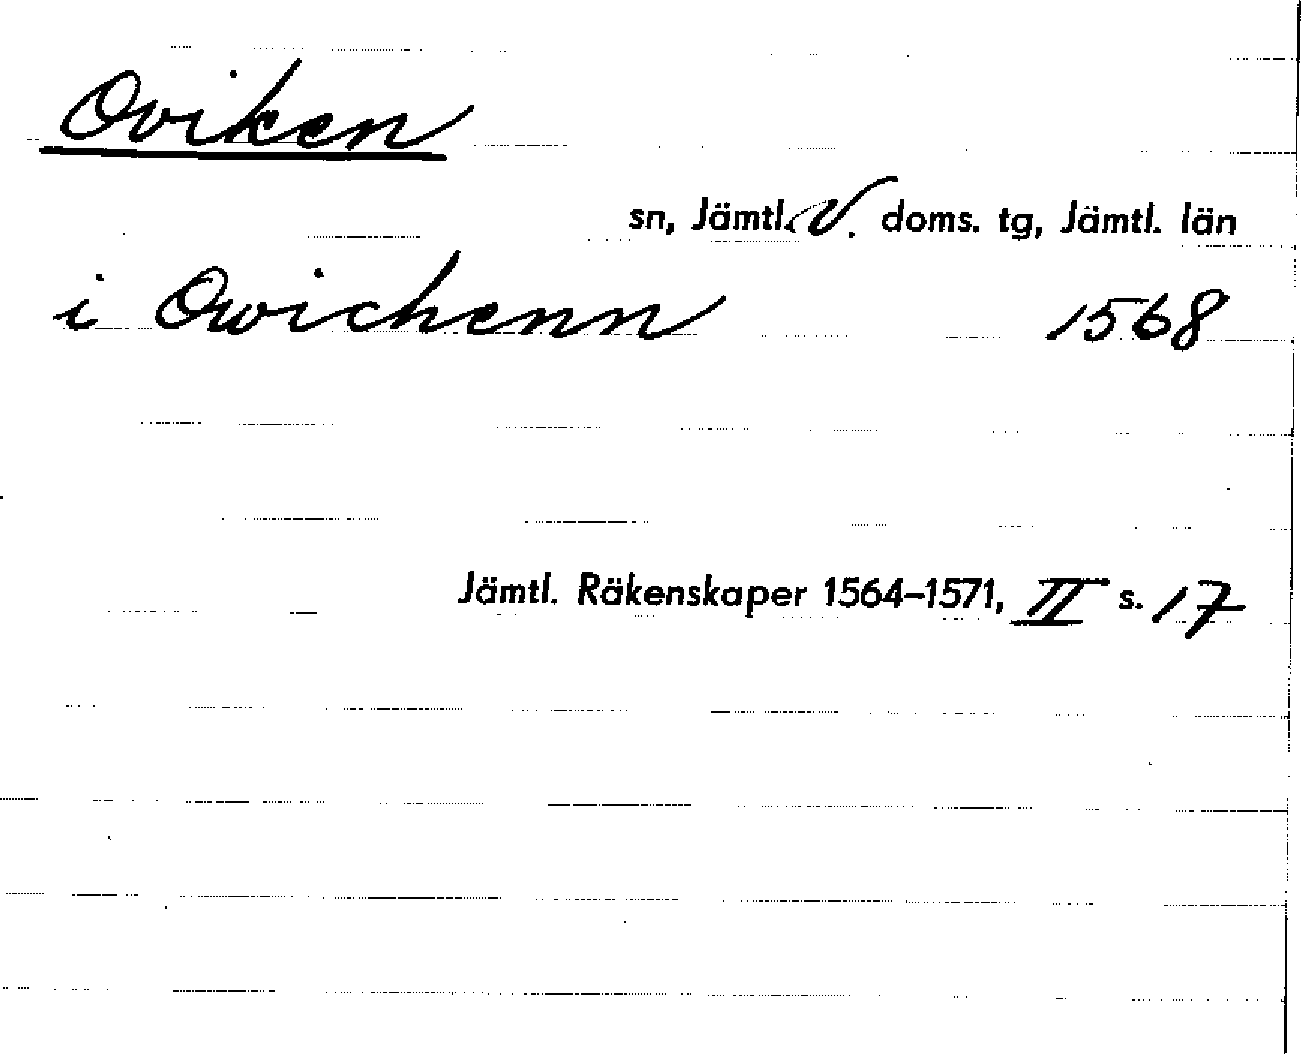 Oviken
sn, Jämtl. V. doms. tg, Jämtl. län
i Owichenn 1568
Jämtl. Räkenskaper 1564–1571, II s. 17